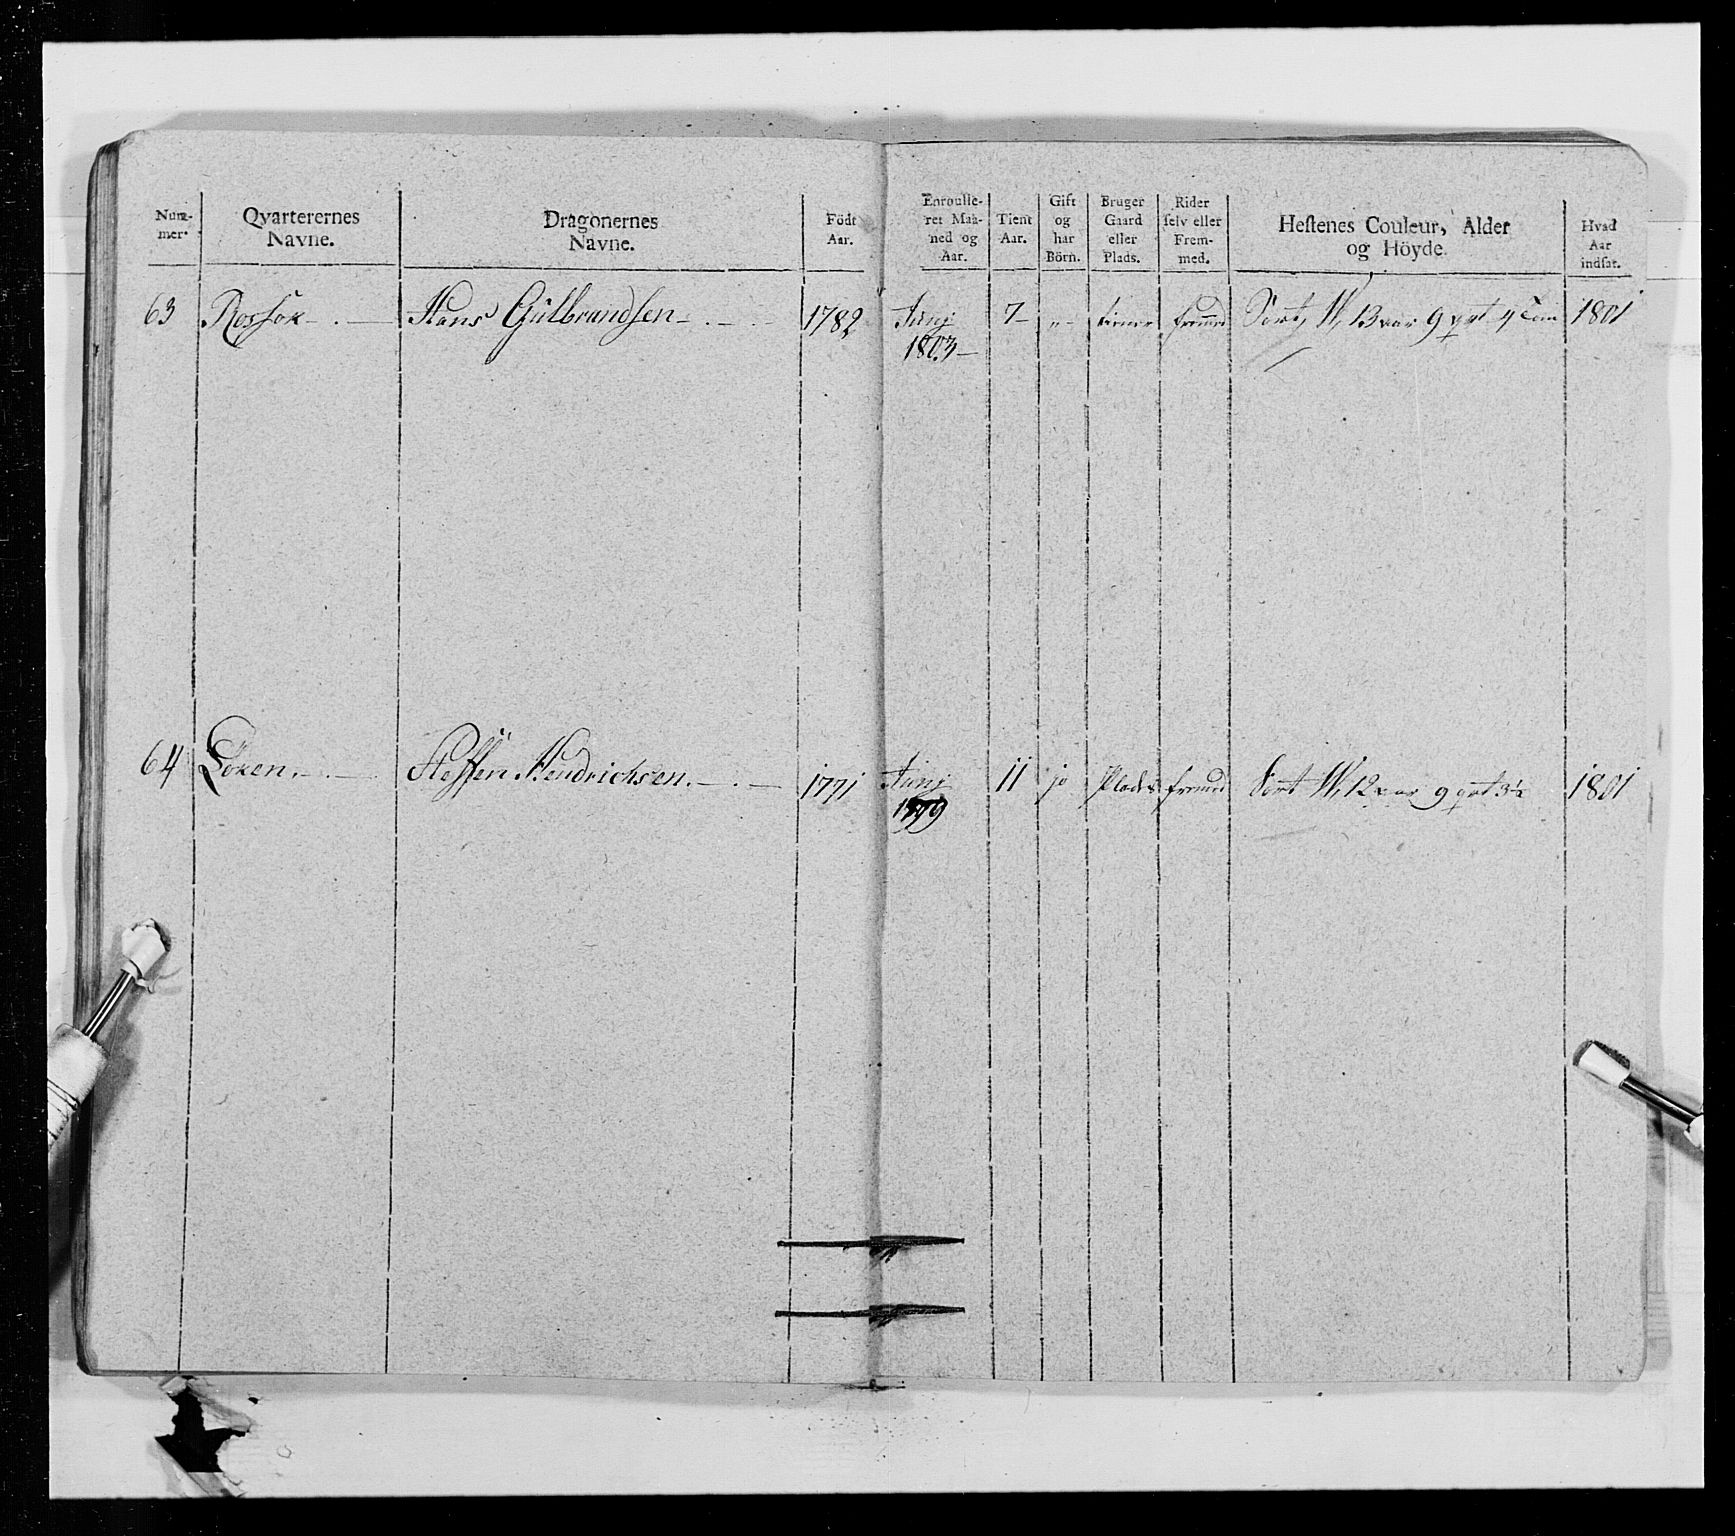 Num-
mer.
Qvarterernes
Navne.
Dragonernes
Navne.
Födt
Aar.
Enroulle-
ret Maa-
ned og
Aar.
Tient
Aar.
Gift
og
har
Börn.
Bruger
Gaard
eller
Plads.
Rider
selv eller
Frem-
med.
Hestenes Couleur, Alder
og Höyde.
Hvad
Aar
indsat.
63 Hans Gulbrandsen 1782 Junj 7 tiener fremed Sort, W, 13 aar 9 qrt 4 Tom 1801
1803
64 Löken Steffen Hendrichsen 1771 Junj 11 jo Plads fremed Sort W, 12 aar 9 qrt 3½ 1801